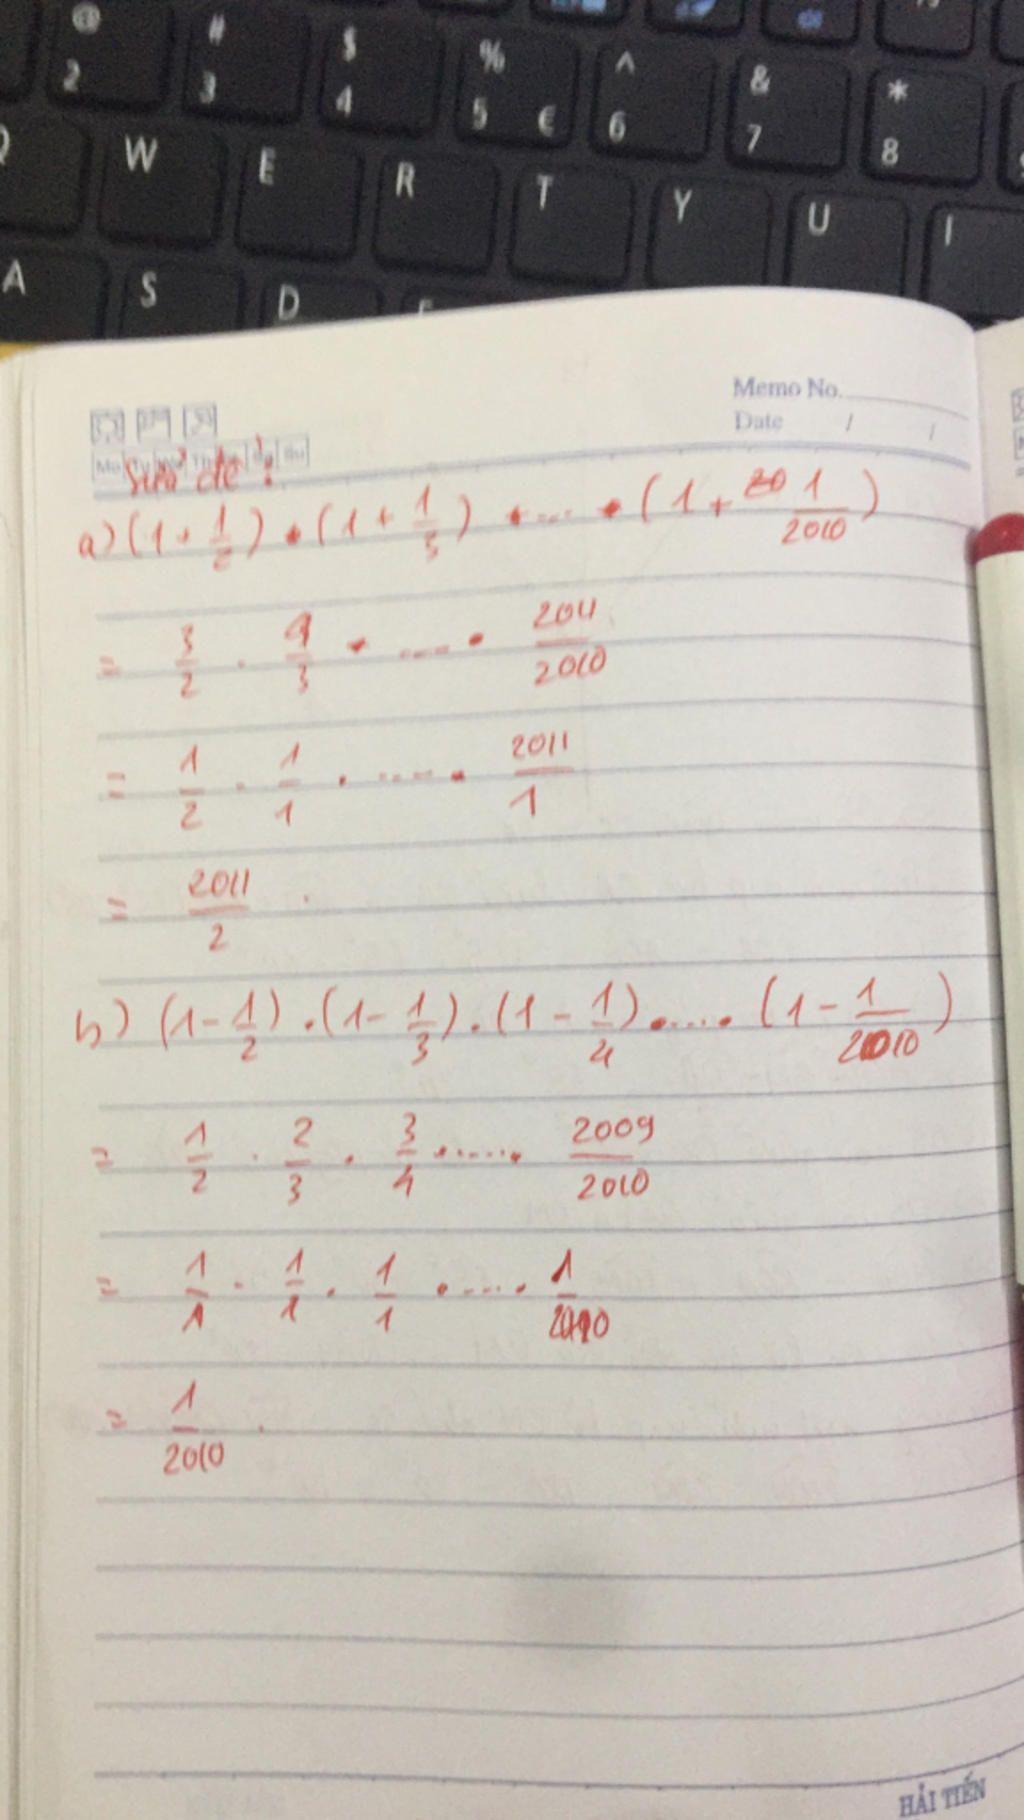 @ # $ % ^ & *
2 3 4 5 € 6 7 8
Q W E R T Y U I
A S D F
Memo No.
Date / /
Mo Tu We Th Fr Sa Su
Sửa đề:
a) (1 + 1/2) . (1 + 1/3) . ... . (1 + 1/2010)
= 3/2 . 4/3 . .... . 2011/2010
= 1/2 . 1/1 . .... . 2011/1
= 2011/2 .
b) (1 - 1/2) . (1 - 1/3) . (1 - 1/4) ..... (1 - 1/2010)
= 1/2 . 2/3 . 3/4 ...... 2009/2010
= 1/1 . 1/1 . 1/1 ..... 1/2010
= 1/2010 .
HẢI TIẾN